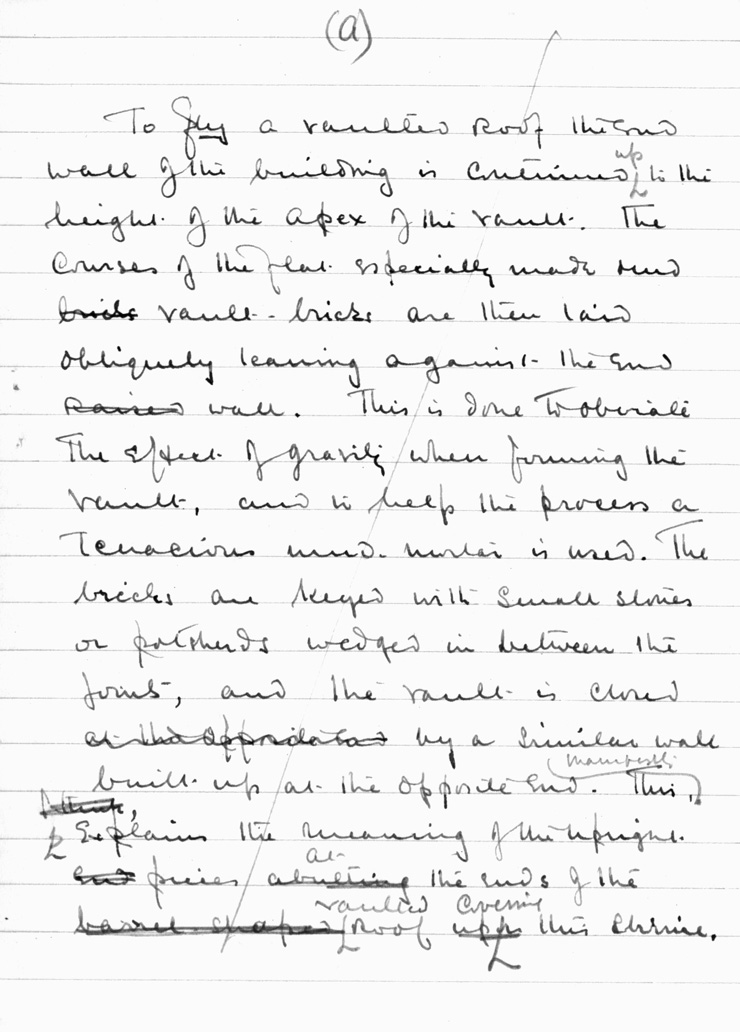 (a)
To a vaulted roof the end
wall of the building is continued up to the
height of the apex of the vault. The
Courses of the flat especially made mud
bricks vault-bricks are then laid
obliquely leaning against the end
raised wall. This is done to obviate
the effect of gravity when forming the
vault, and to help the process a
tenacious mud-mortar is used. The
bricks are keyed with small stones
or potsherds wedged in between the
joints, and the vault is closed
at the opposite end by a similar wall
built up at the opposite end. This,
I think,
explains the meaning of the upright
end pieces at abutting the ends of the
barrel shaped vaulted roof covering this shrine.